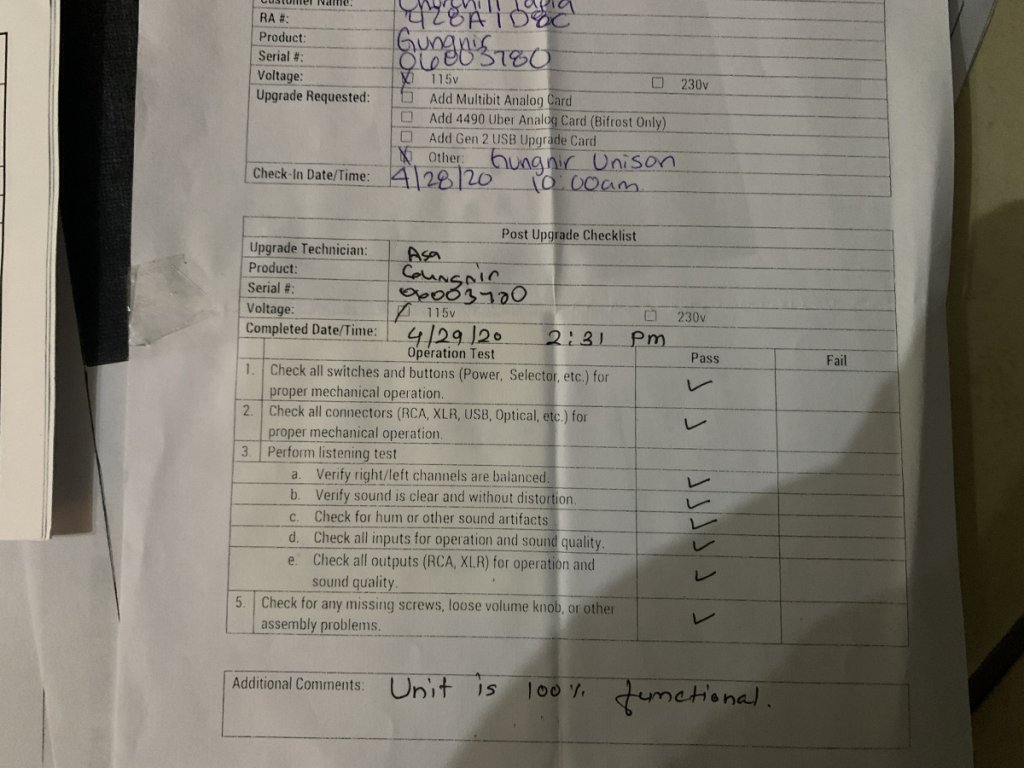 Customer Name: Churchill Tapia
RA #: 428A1D8C
Product: Gungnir
Serial #: 06803780
Voltage: 115v 230v
Upgrade Requested: Add Multibit Analog Card
Add 4490 Uber Analog Card (Bifrost Only)
Add Gen 2 USB Upgrade Card
Other: Gungnir Unison
Check-In Date/Time: 4/28/20 10:00am
Post Upgrade Checklist
Upgrade Technician: Asa
Product: Goungnir
Serial #:
Voltage: 115v 230v
Completed Date/Time: 4/29/20 2:31 Pm
Operation Test Pass Fail
1. Check all switches and buttons (Power, Selector, etc.) for
proper mechanical operation.
2. Check all connectors (RCA, XLR, USB, Optical, etc.) for
proper mechanical operation.
3. Perform listening test
a. Verify right/left channels are balanced.
b. Verify sound is clear and without distortion.
c. Check for hum or other sound artifacts
d. Check all inputs for operation and sound quality.
e. Check all outputs (RCA, XLR) for operation and
sound quality.
5. Check for any missing screws, loose volume knob, or other
assembly problems.
Additional Comments: Unit is 100% functional.